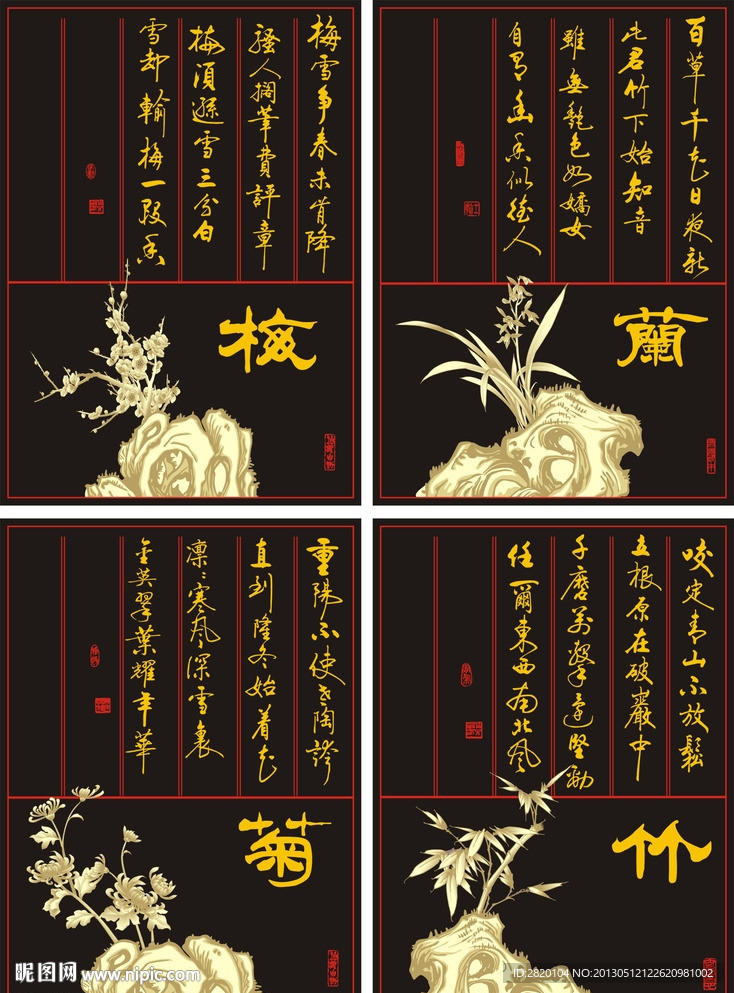 梅雪争春未肯降
騷人擱筆費評章
梅須遜雪三分白
雪却輸梅一段香
梅
百草千花日夜新
此君竹下始知音
雖無艷色如嬌女
自有幽香似德人
蘭
重陽不使老陶誇
直到隆冬始着花
凛〻寒風深雪裏
金英翠葉耀年華
菊
咬定青山不放鬆
立根原在破巖中
千磨萬擊還堅勁
任爾東西南北風
竹
昵图网 www.nipic.com
ID:2820104 NO:20130512122620981002